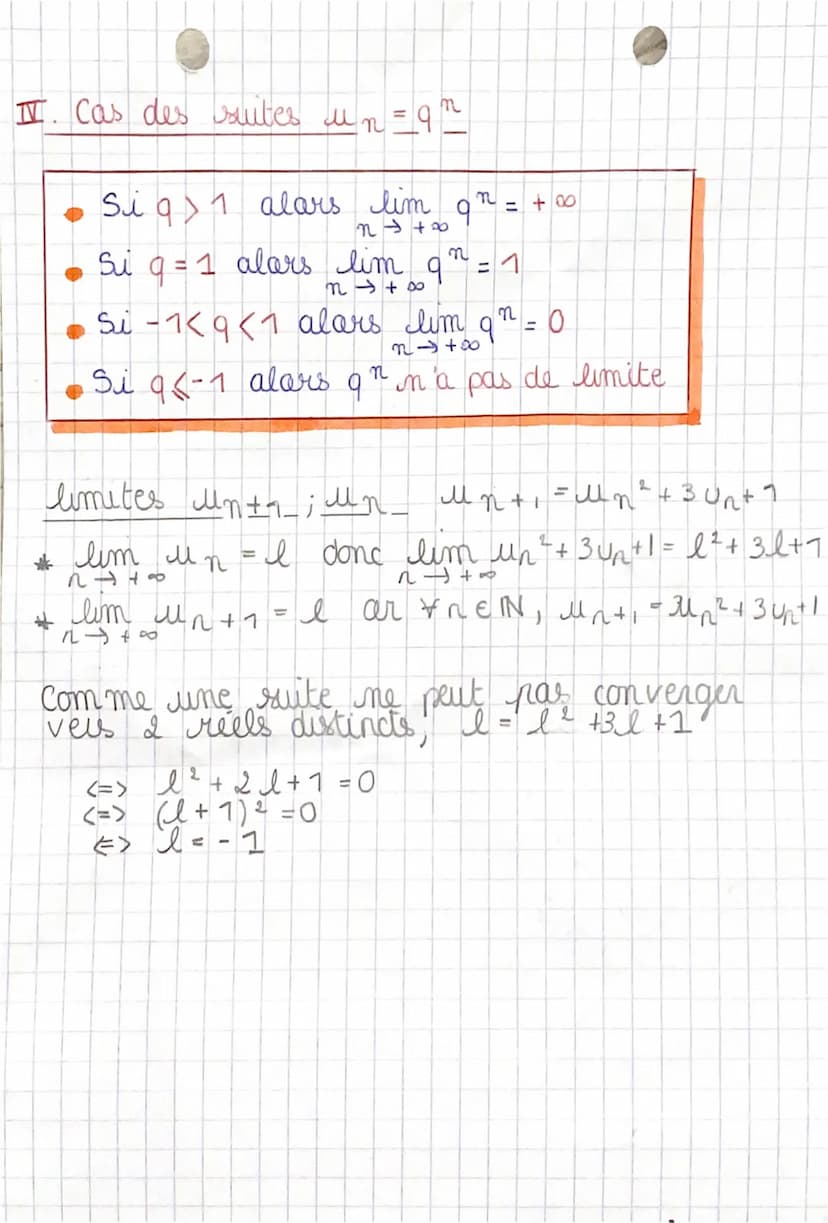 IV. Cas des suites un = qⁿ
• Si q > 1 alors lim qⁿ = +∞
n → +∞
• Si q = 1 alors lim qⁿ = 1
n → +∞
• Si -1 < q < 1 alors lim qⁿ = 0
n → +∞
• Si q ⩽ -1 alors qⁿ n'a pas de limite
limites un+1 ; un un+1 = un² + 3un + 1
* lim un = l donc lim un² + 3un + 1 = l² + 3l + 1
n → +∞ n → +∞
* lim un+1 = l ar ∀n ∈ ℕ, un+1 = un² + 3un + 1
n → +∞
Comme une suite ne peut pas converger
vers 2 réels distincts, l = l² + 3l + 1
<=> l² + 2l + 1 = 0
<=> (l + 1)² = 0
<=> l = -1